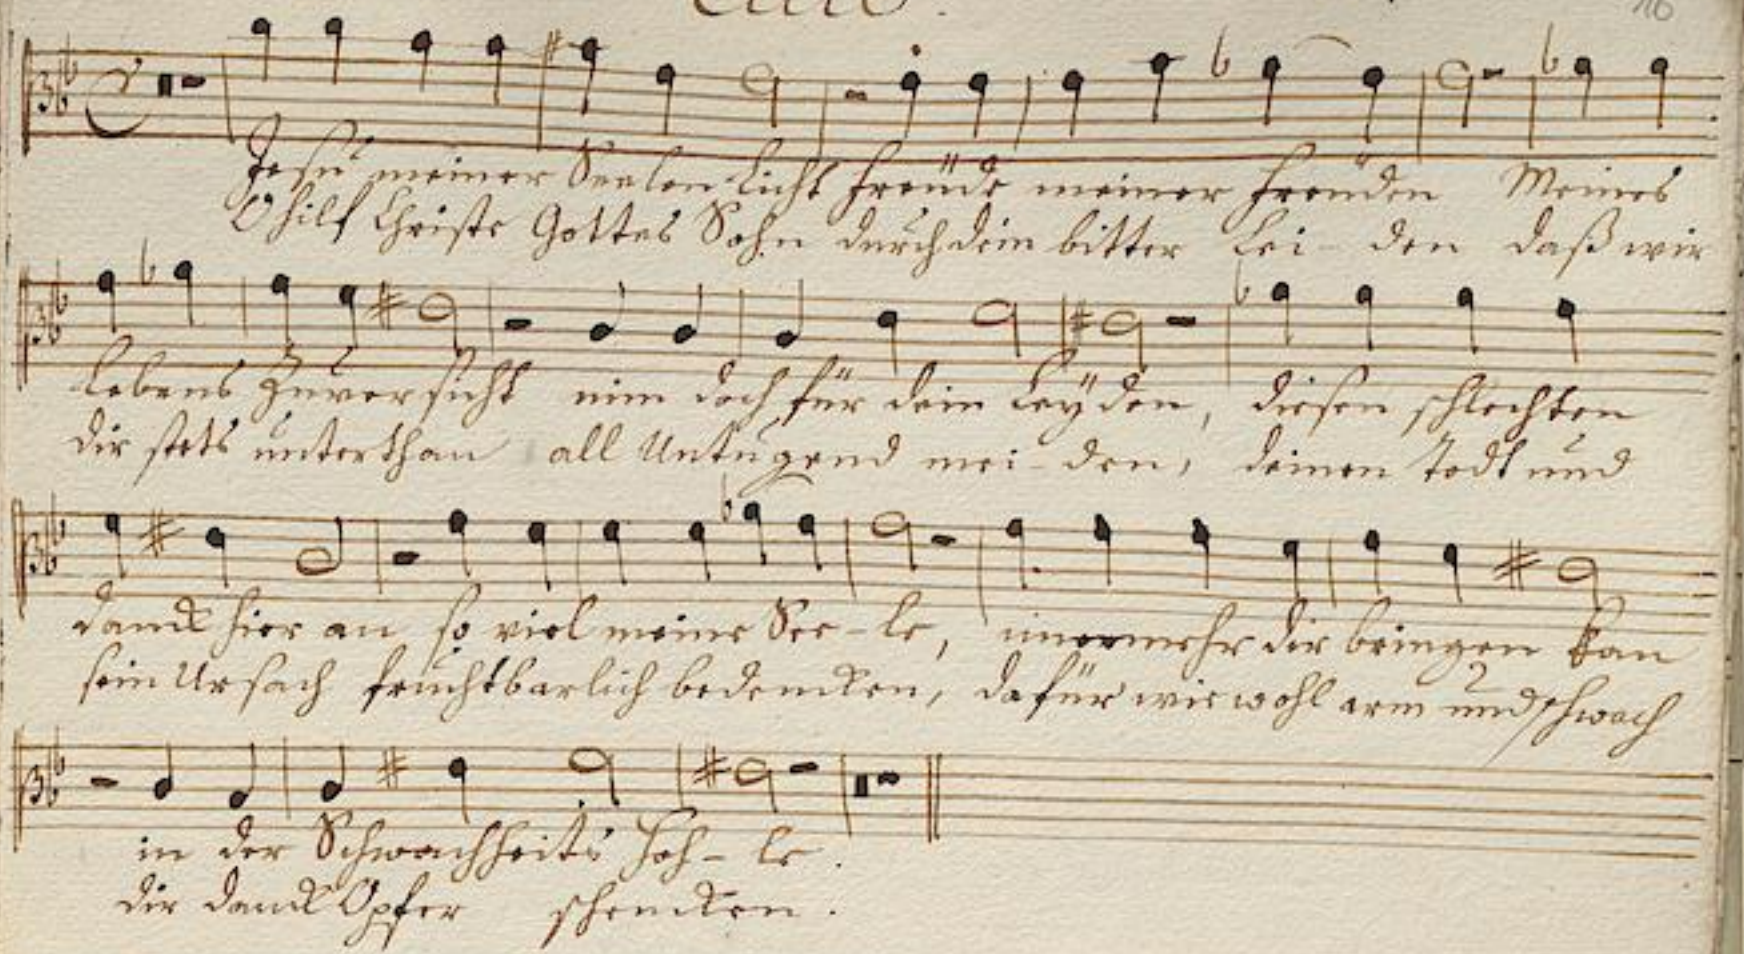 16
Jesu meiner Seelen Licht freüde meiner freüden Meines
O hilf Christe Gottes Sohn durch dein bitter Lei- den daß wir
Lebens Zuversicht nim doch für dein Leÿden, diesen schlechten
dir stets unterthan all Untugend mei- den, deinen Todt und
danck hier an so viel meine See- le, immermehr dir bringen kan
sein Ursach fruchtbarlich bedencken, dafür wir wohl arm und schwach
in der Schwachheits Höh- le.
dir danck Opfer schencken.